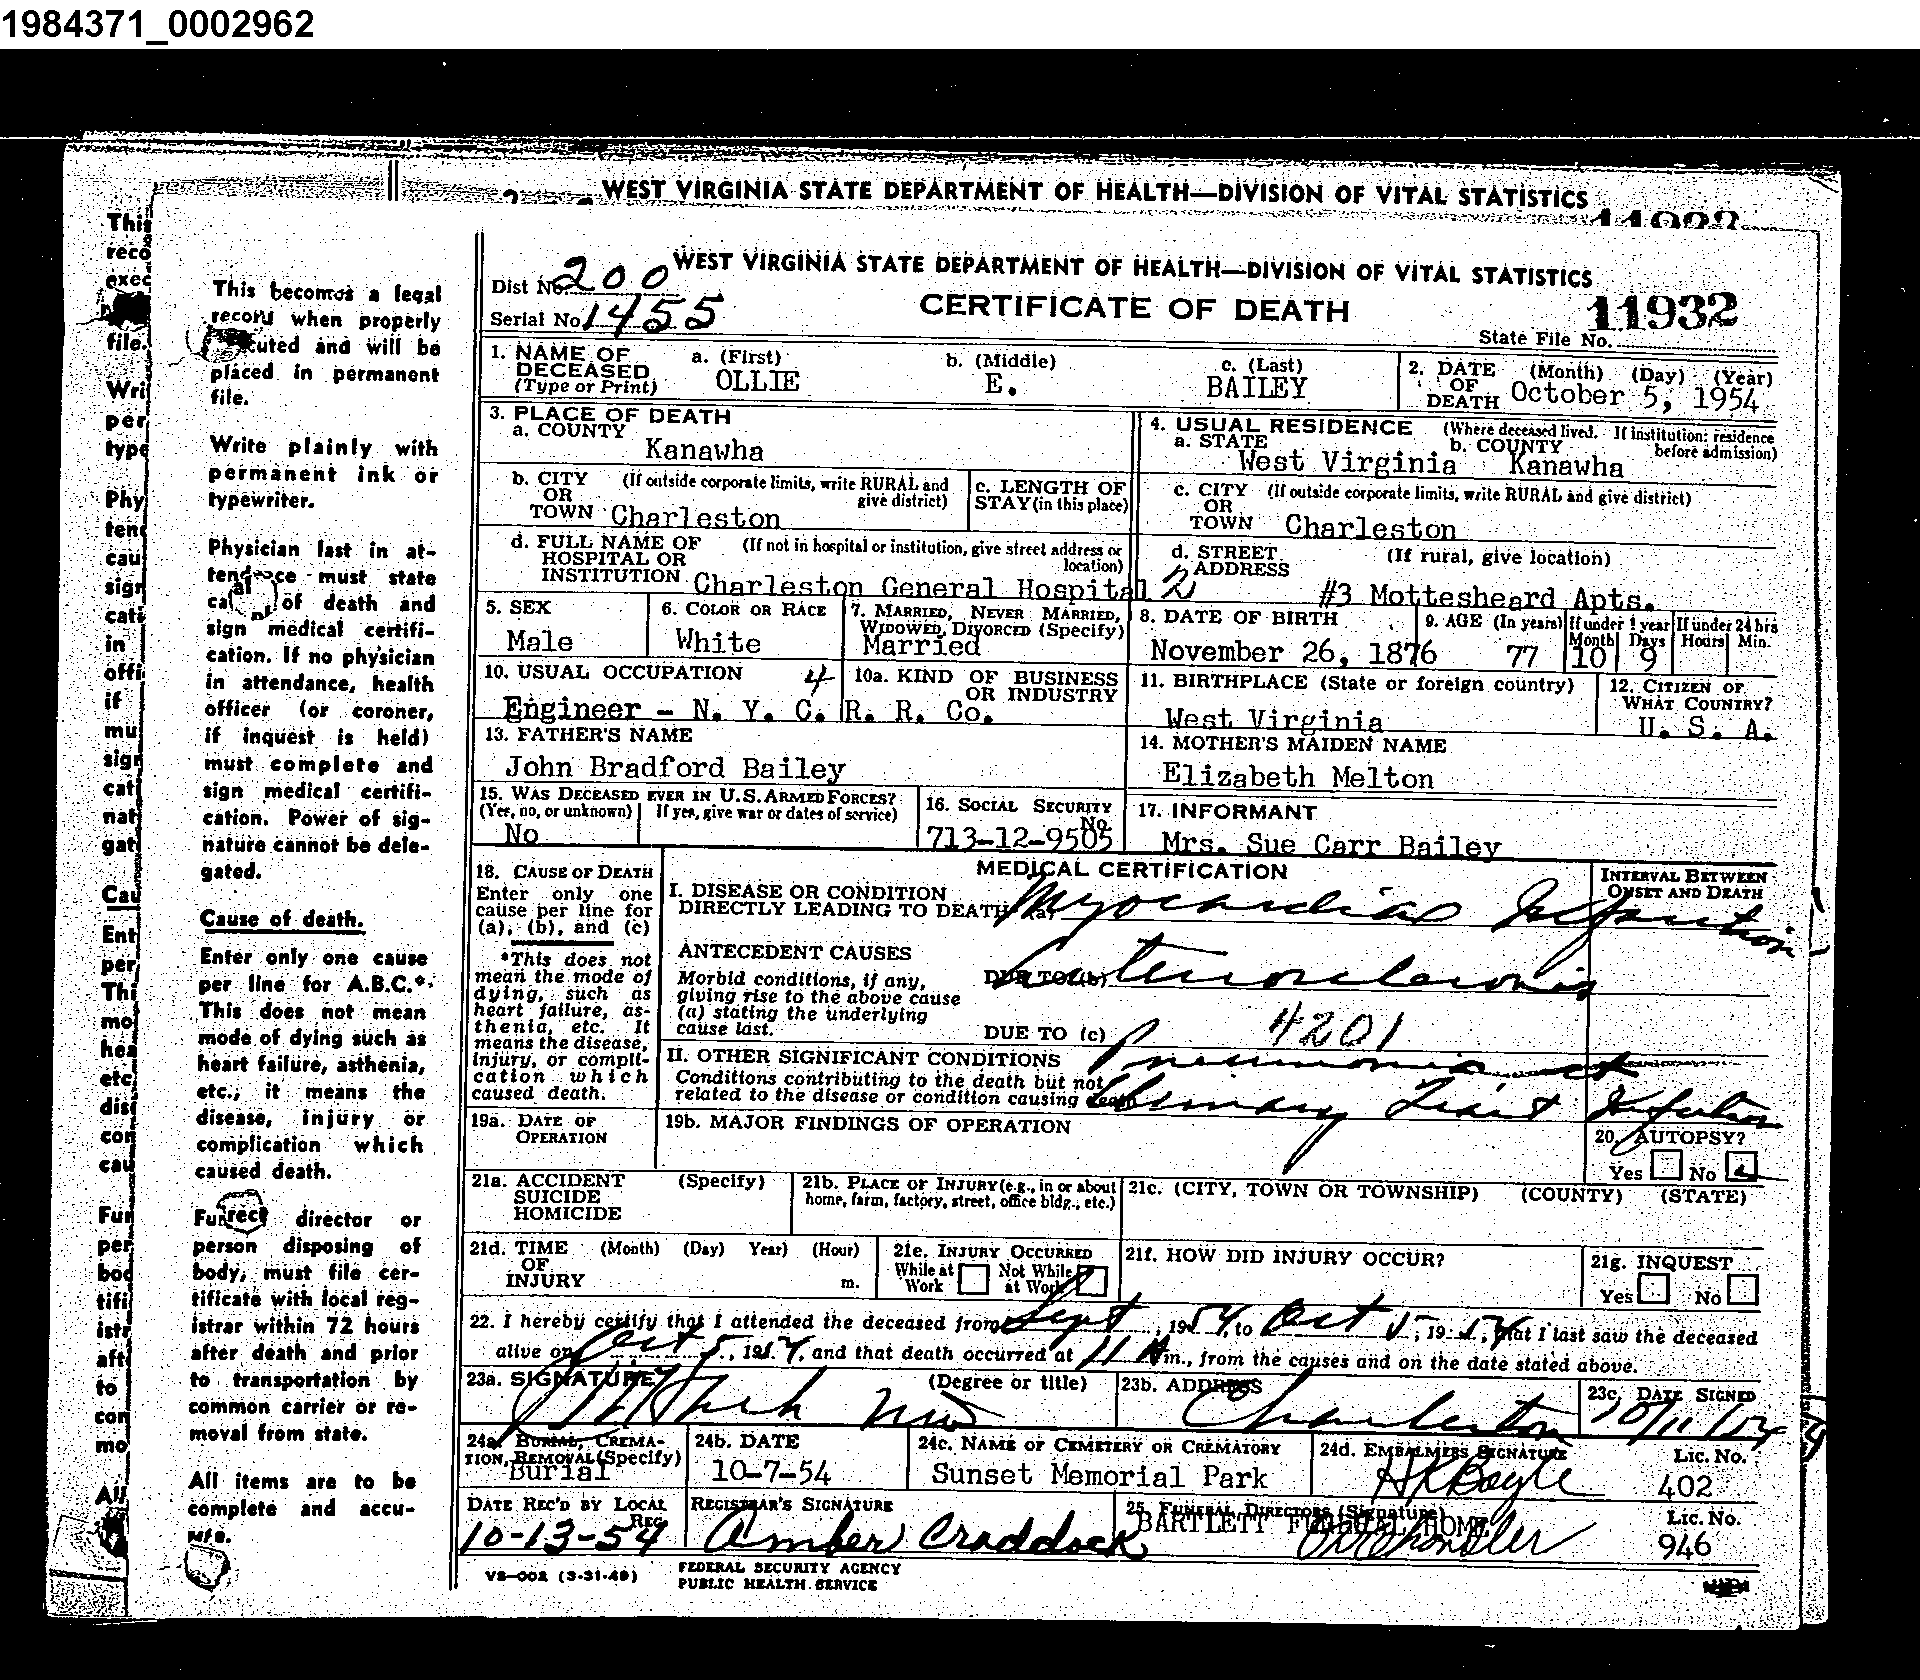 1984371_0002962
WEST VIRGINIA STATE DEPARTMENT OF HEALTH—DIVISION OF VITAL STATISTICS
This becomes a legal
record when properly
cuted and will be
placed in permanent
file.
Write plainly with
permanent ink or
typewriter.
Physician last in at-
tendance must state
of death and
sign medical certifi-
cation. If no physician
in attendance, health
officer (or coroner,
if inquest is held)
must complete and
sign medical certifi-
cation. Power of sig-
nature cannot be dele-
gated.
Cause of death.
Enter only one cause
per line for A.B.C.*.
This does not mean
mode of dying such as
heart failure, asthenia,
etc., it means the
disease, injury or
complication which
caused death.
director or
person disposing of
body, must file cer-
tificate with local reg-
istrar within 72 hours
after death and prior
to transportation by
common carrier or re-
moval from state.
All items are to be
complete and accu-
Dist No. 200
WEST VIRGINIA STATE DEPARTMENT OF HEALTH—DIVISION OF VITAL STATISTICS
Serial No. 1455
CERTIFICATE OF DEATH
11932
State File No.
1. NAME OF DECEASED (Type or Print) a. (First) OLLIE b. (Middle) E. c. (Last) BAILEY
2. DATE OF DEATH (Month) (Day) (Year) October 5, 1954
3. PLACE OF DEATH
a. COUNTY Kanawha
4. USUAL RESIDENCE (Where deceased lived. If institution: residence before admission)
a. STATE West Virginia b. COUNTY Kanawha
b. CITY OR TOWN (If outside corporate limits, write RURAL and give district) Charleston
c. LENGTH OF STAY (in this place)
c. CITY OR TOWN (If outside corporate limits, write RURAL and give district) Charleston
d. FULL NAME OF HOSPITAL OR INSTITUTION (If not in hospital or institution, give street address or location) Charleston General Hospital 2
d. STREET ADDRESS (If rural, give location) #3 Mottesheard Apts.
5. SEX Male
6. COLOR OR RACE White
7. MARRIED, NEVER MARRIED, WIDOWED, DIVORCED (Specify) Married
8. DATE OF BIRTH November 26, 1876
9. AGE (In years) 77 If under 1 year Month 10 Days 9 If under 24 hrs Hours Min.
10. USUAL OCCUPATION 4 Engineer - N. Y. C. R. R. Co.
10a. KIND OF BUSINESS OR INDUSTRY
11. BIRTHPLACE (State or foreign country) West Virginia
12. CITIZEN OF WHAT COUNTRY? U. S. A.
13. FATHER'S NAME John Bradford Bailey
14. MOTHER'S MAIDEN NAME Elizabeth Melton
15. WAS DECEASED EVER IN U.S. ARMED FORCES? (Yes, no, or unknown) No If yes, give war or dates of service)
16. SOCIAL SECURITY No. 713-12-9505
17. INFORMANT Mrs. Sue Carr Bailey
MEDICAL CERTIFICATION
18. CAUSE OF DEATH
Enter only one
cause per line for
(a), (b), and (c)
*This does not
mean the mode of
dying, such as
heart failure, as-
thenia, etc. It
means the disease,
injury, or compli-
cation which
caused death.
I. DISEASE OR CONDITION
DIRECTLY LEADING TO DEATH* (a) Myocardial Infarction
INTERVAL BETWEEN ONSET AND DEATH
ANTECEDENT CAUSES
Morbid conditions, if any,
giving rise to the above cause
(a) stating the underlying
cause last.
DUE TO (b)
DUE TO (c) 4201
II. OTHER SIGNIFICANT CONDITIONS
Conditions contributing to the death but not
related to the disease or condition causing death.
Pneumonia
Tract Infection
19a. DATE OF OPERATION
19b. MAJOR FINDINGS OF OPERATION
20. AUTOPSY?
Yes No
21a. ACCIDENT SUICIDE HOMICIDE (Specify)
21b. PLACE OF INJURY (e.g., in or about home, farm, factory, street, office bldg., etc.)
21c. (CITY, TOWN OR TOWNSHIP) (COUNTY) (STATE)
21d. TIME OF INJURY (Month) (Day) Year) (Hour) m.
21e. INJURY OCCURRED While at Work Not While at Work
21f. HOW DID INJURY OCCUR?
21g. INQUEST Yes No
22. I hereby certify that I attended the deceased from Sept, 1954, to Oct 5, 1954, that I last saw the deceased
alive on Oct 5, 1954, and that death occurred at 11 A m., from the causes and on the date stated above.
23a. SIGNATURE (Degree or title)
23b. ADDRESS Charleston
23c. DATE SIGNED 10/11/54
24a. BURIAL, CREMATION, REMOVAL (Specify) Burial
24b. DATE 10-7-54
24c. NAME OF CEMETERY OR CREMATORY Sunset Memorial Park
24d. EMBALMERS SIGNATURE HKBoyle Lic. No. 402
DATE REC'D BY LOCAL REG. 10-13-54
REGISTRAR'S SIGNATURE Amber Craddock
25. FUNERAL DIRECTORS (Signature) BARTLETT FUNERAL HOME Lic. No. 946
VS-002 (3-31-49)
FEDERAL SECURITY AGENCY
PUBLIC HEALTH SERVICE